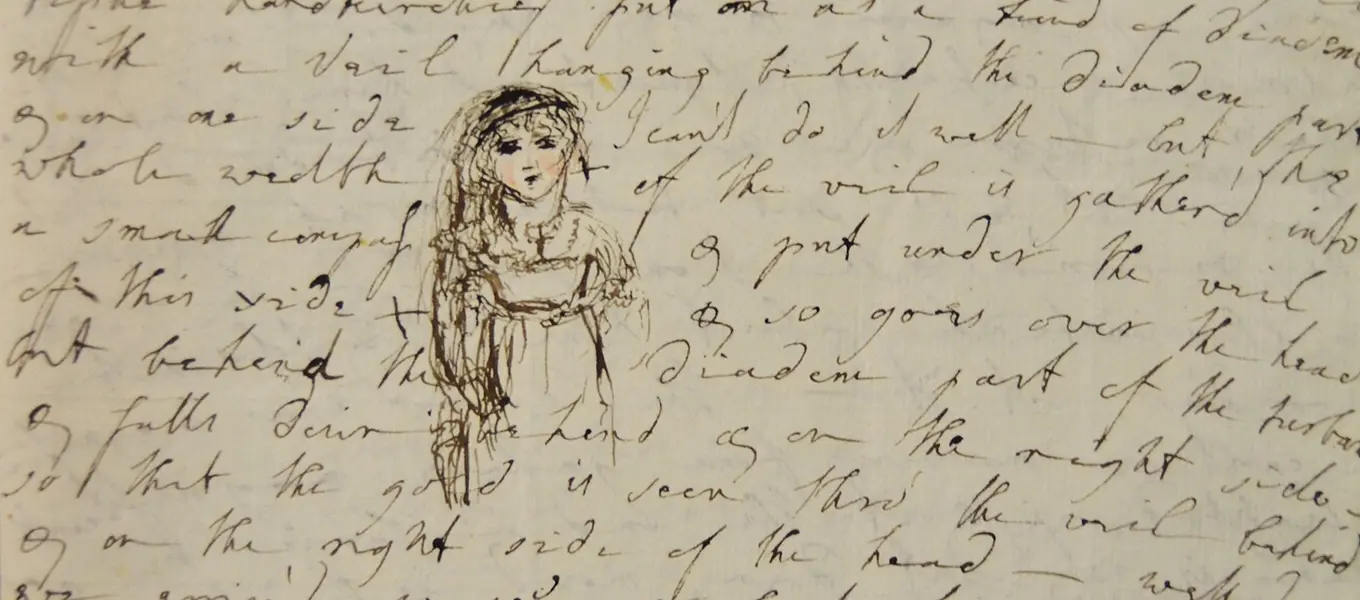 handkerchief put on as a kind of diadem
with a Veil hanging behind the diadem part
& on one side I can't do it well — but the
whole width + of the veil is gatherd into
a small compass & put under the veil
of this side + & so goes over the head
but behind the diadem part of the turban
& falls down behind & on the right side
so that the gold is seen thro' the veil behind
& on the right side of the head —